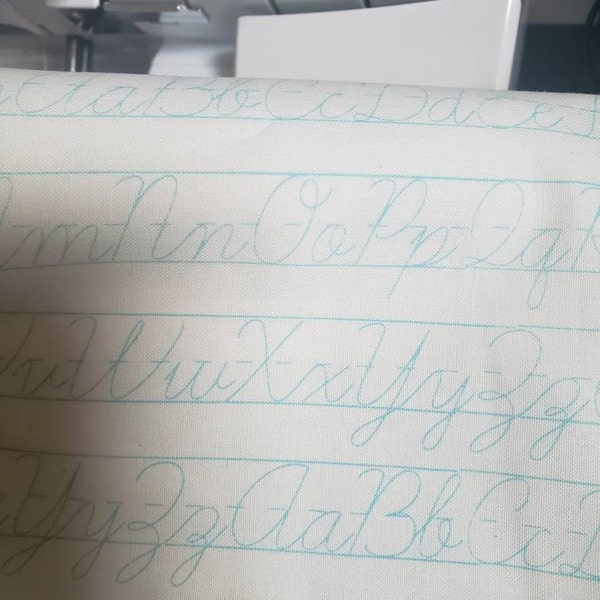 Aa Bb Cc Dd Ee
m Nn Oo Pp Qq R
v Ww Xx Yy Zz
Yy Zz Aa Bb Cc D